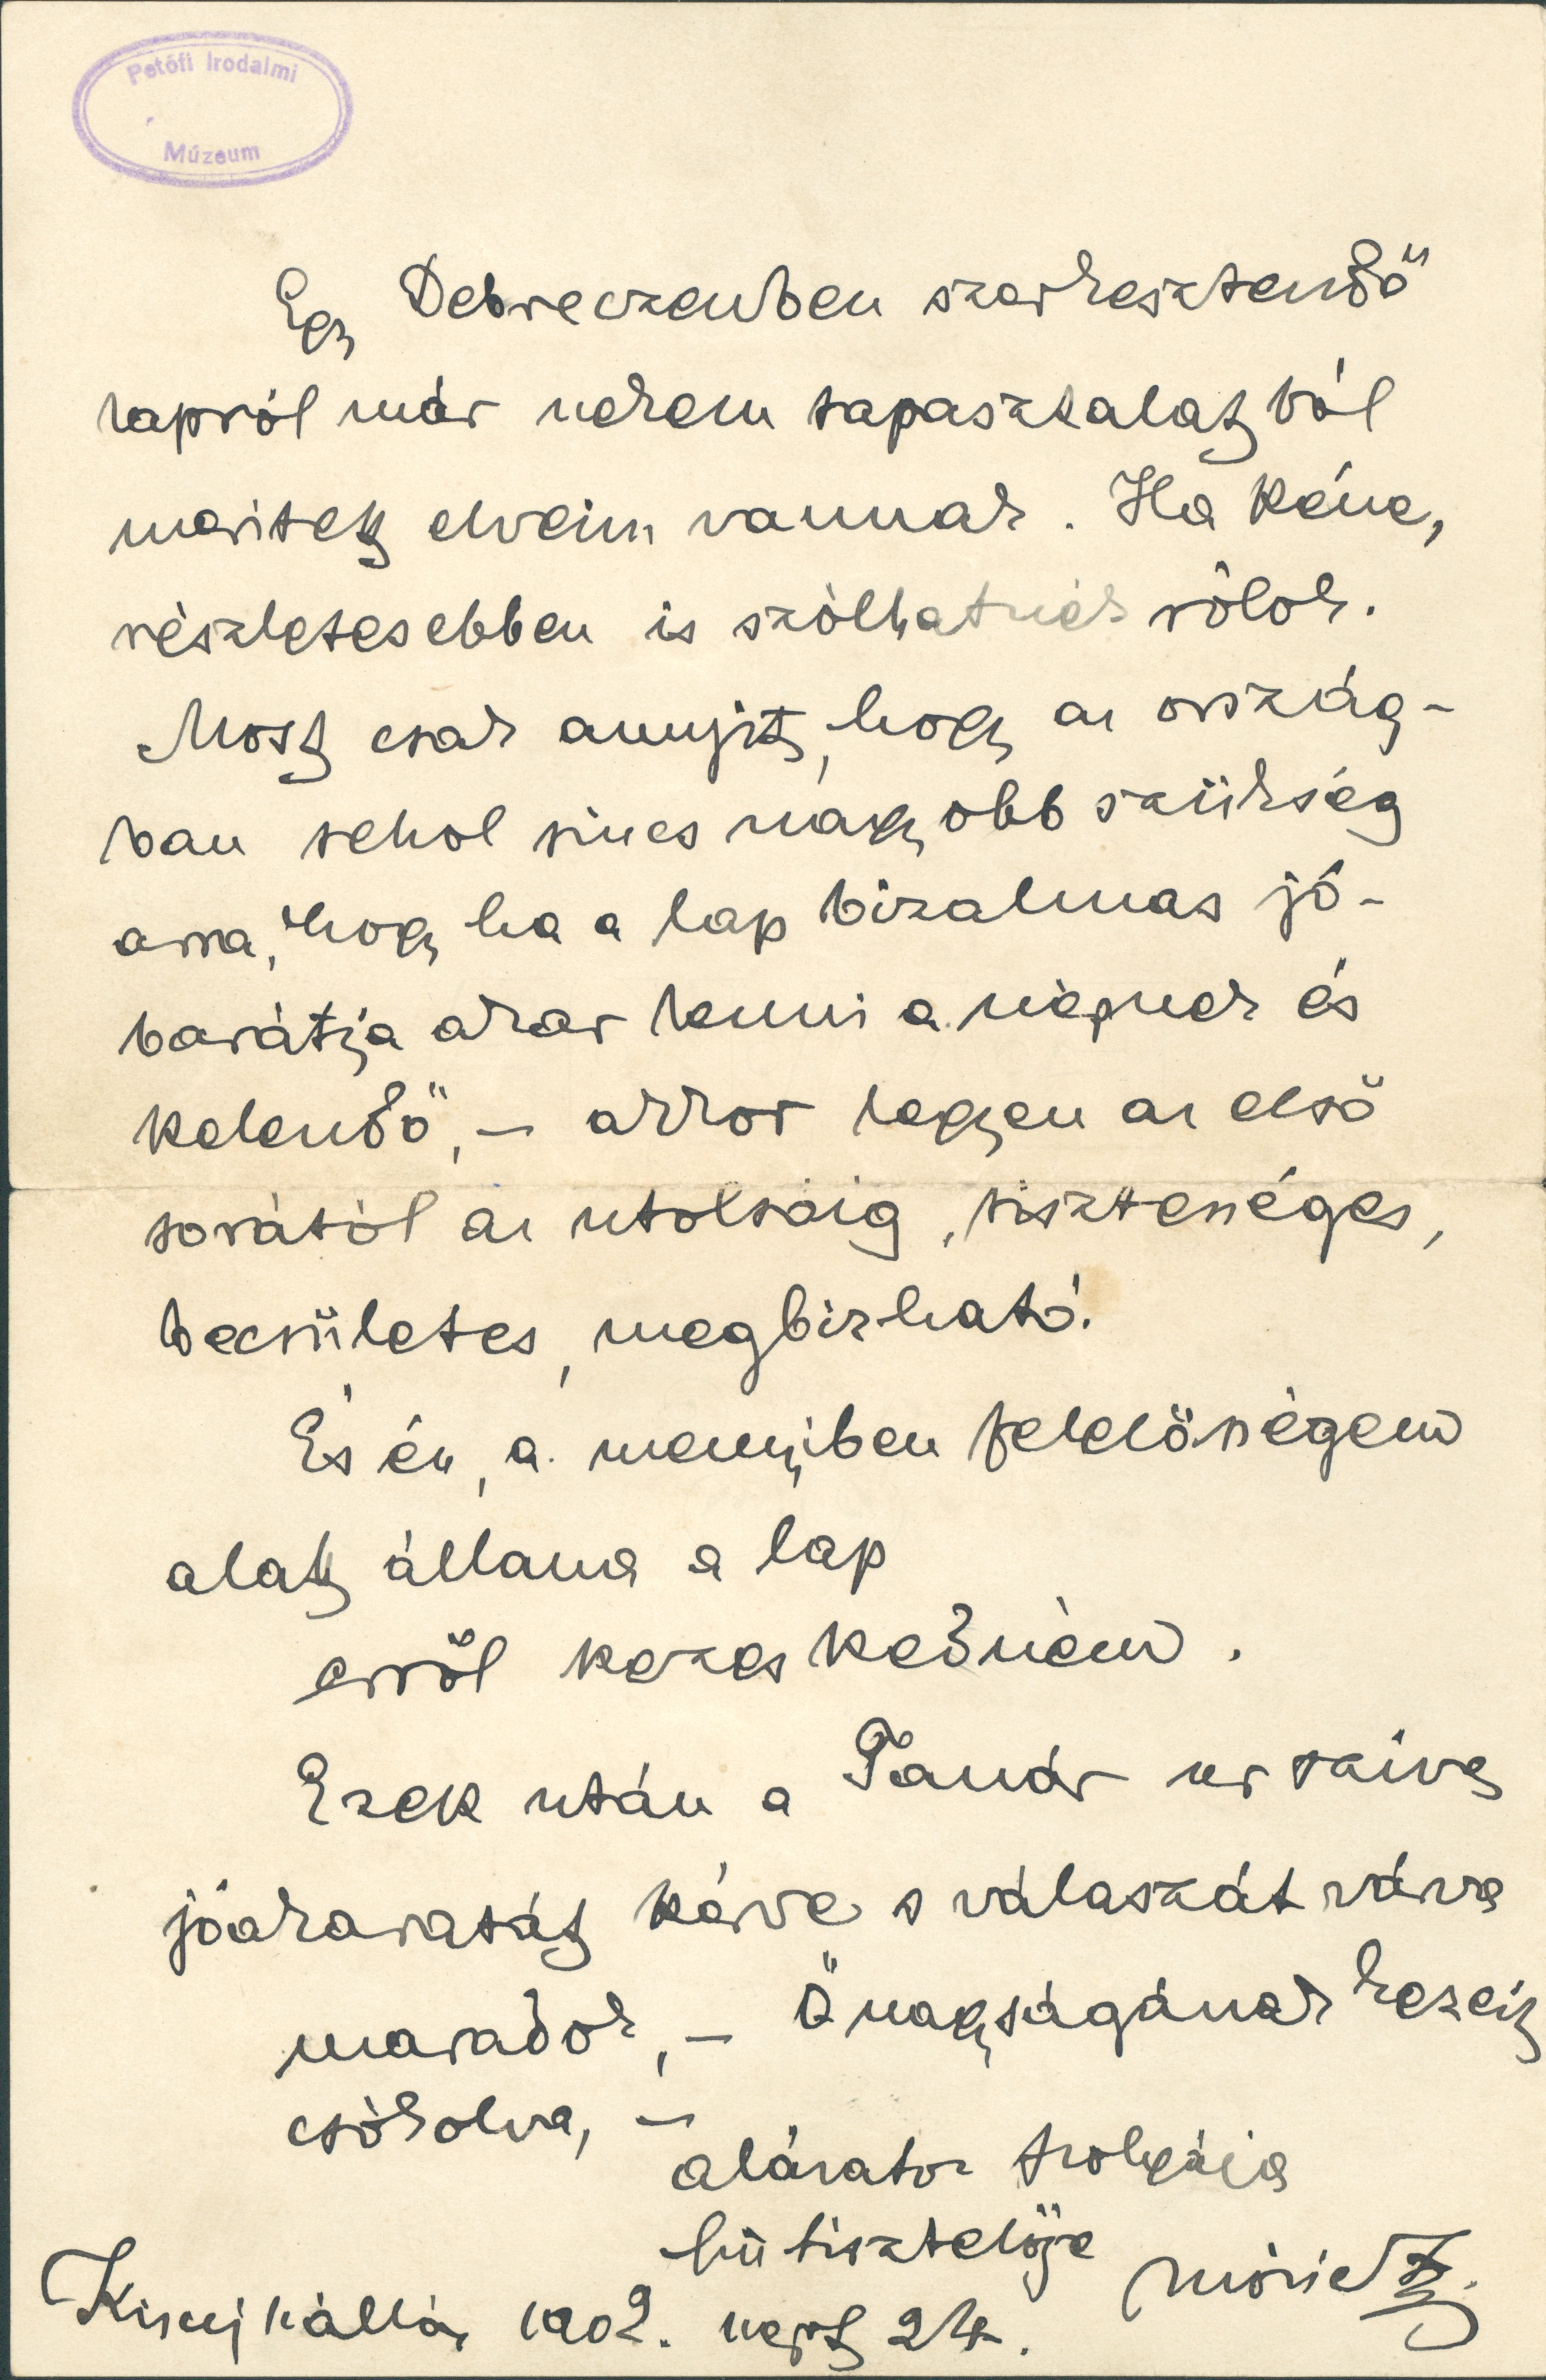 Petőfi Irodalmi
Múzeum
Egy Debreczenben szerkesztendő
lapról már nekem tapasztalatból
meritett elveim vannak. Ha kéne,
részletesebben is szólhatnék rólok.
Most csak annyit, hogy az ország-
ban sehol sincs nagyobb szükség
arra, hogy ha a lap bizalmas jó-
barátja akar lenni a népnek és
kelendő, – akkor legyen az első
sorától az utolsóig, tisztességes,
becsületes, megbizható.
És én, a mennyiben felelősségem
alatt állana a lap
erről kezeskedném.
Ezek után a Tanár ur szives
jóakaratát kérve s válaszát várva
maradok, – Önagyságának kezeit
csókolva, –
alázatos szolgája
hü tisztelője Móricz Zs.
Kisujszállás 1902. sept 24.